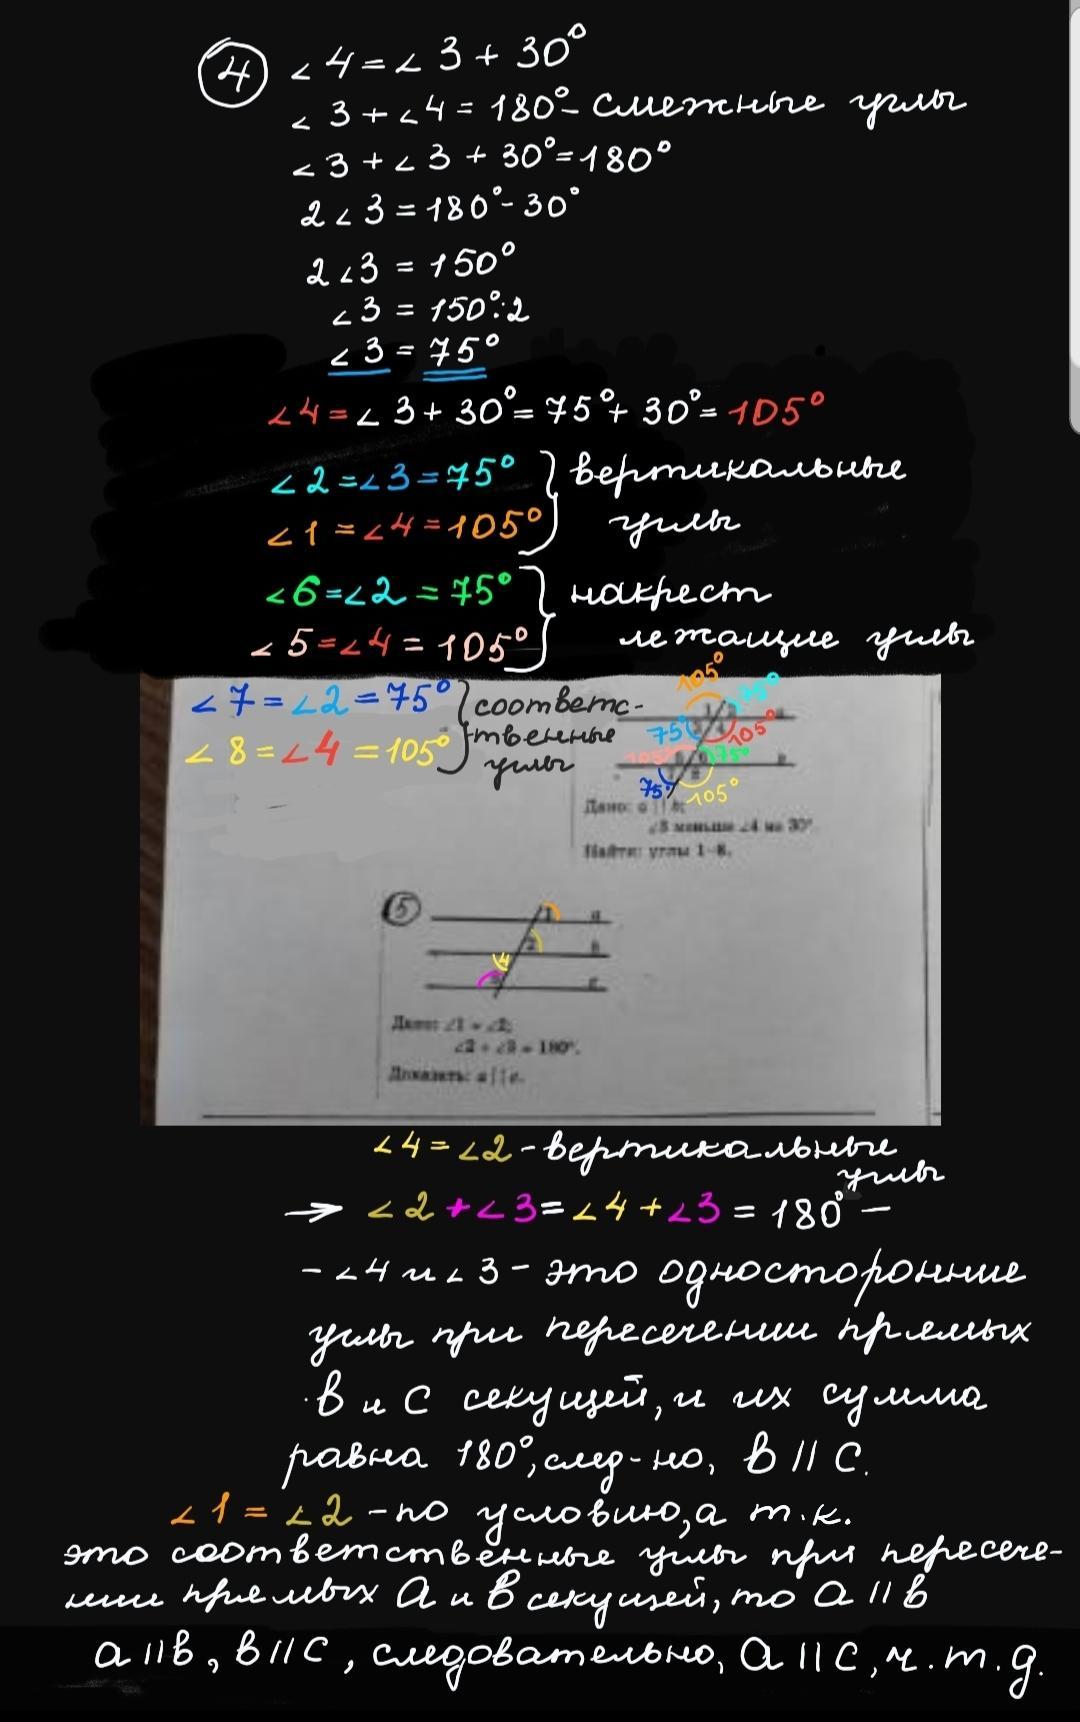 4 ∠4=∠3+30°
∠3+∠4=180°- смежные углы
∠3+∠3+30°=180°
2∠3=180°-30°
2∠3=150°
∠3=150°:2
∠3=75°
∠4=∠3+30°=75°+30°=105°
∠2=∠3=75° } вертикальные
∠1=∠4=105° углы
∠6=∠2=75° } накрест
∠5=∠4=105° лежащие углы
∠7=∠2=75° } соответс-
∠8=∠4=105° твенные
углы
105°
75°
75° 105°
105° 75°
75° 105°
Дано: a || b;
∠3 меньше ∠4 на 30°.
Найти: углы 1-8.
5
1 a
2 b
4
3 c
Дано: ∠1 = ∠2;
∠2 + ∠3 = 180°.
Доказать: a || c.
∠4=∠2-вертикальные
углы
→ ∠2+∠3=∠4+∠3=180°-
-∠4 и ∠3-это односторонние
углы при пересечении прямых
в и с секущей, и их сумма
равна 180°, след-но, в || с.
∠1=∠2-по условию, а т.к.
это соответственные углы при пересече-
нии прямых а и в секущей, то а || в
а || в, в || с, следовательно, а || с, ч.т.д.